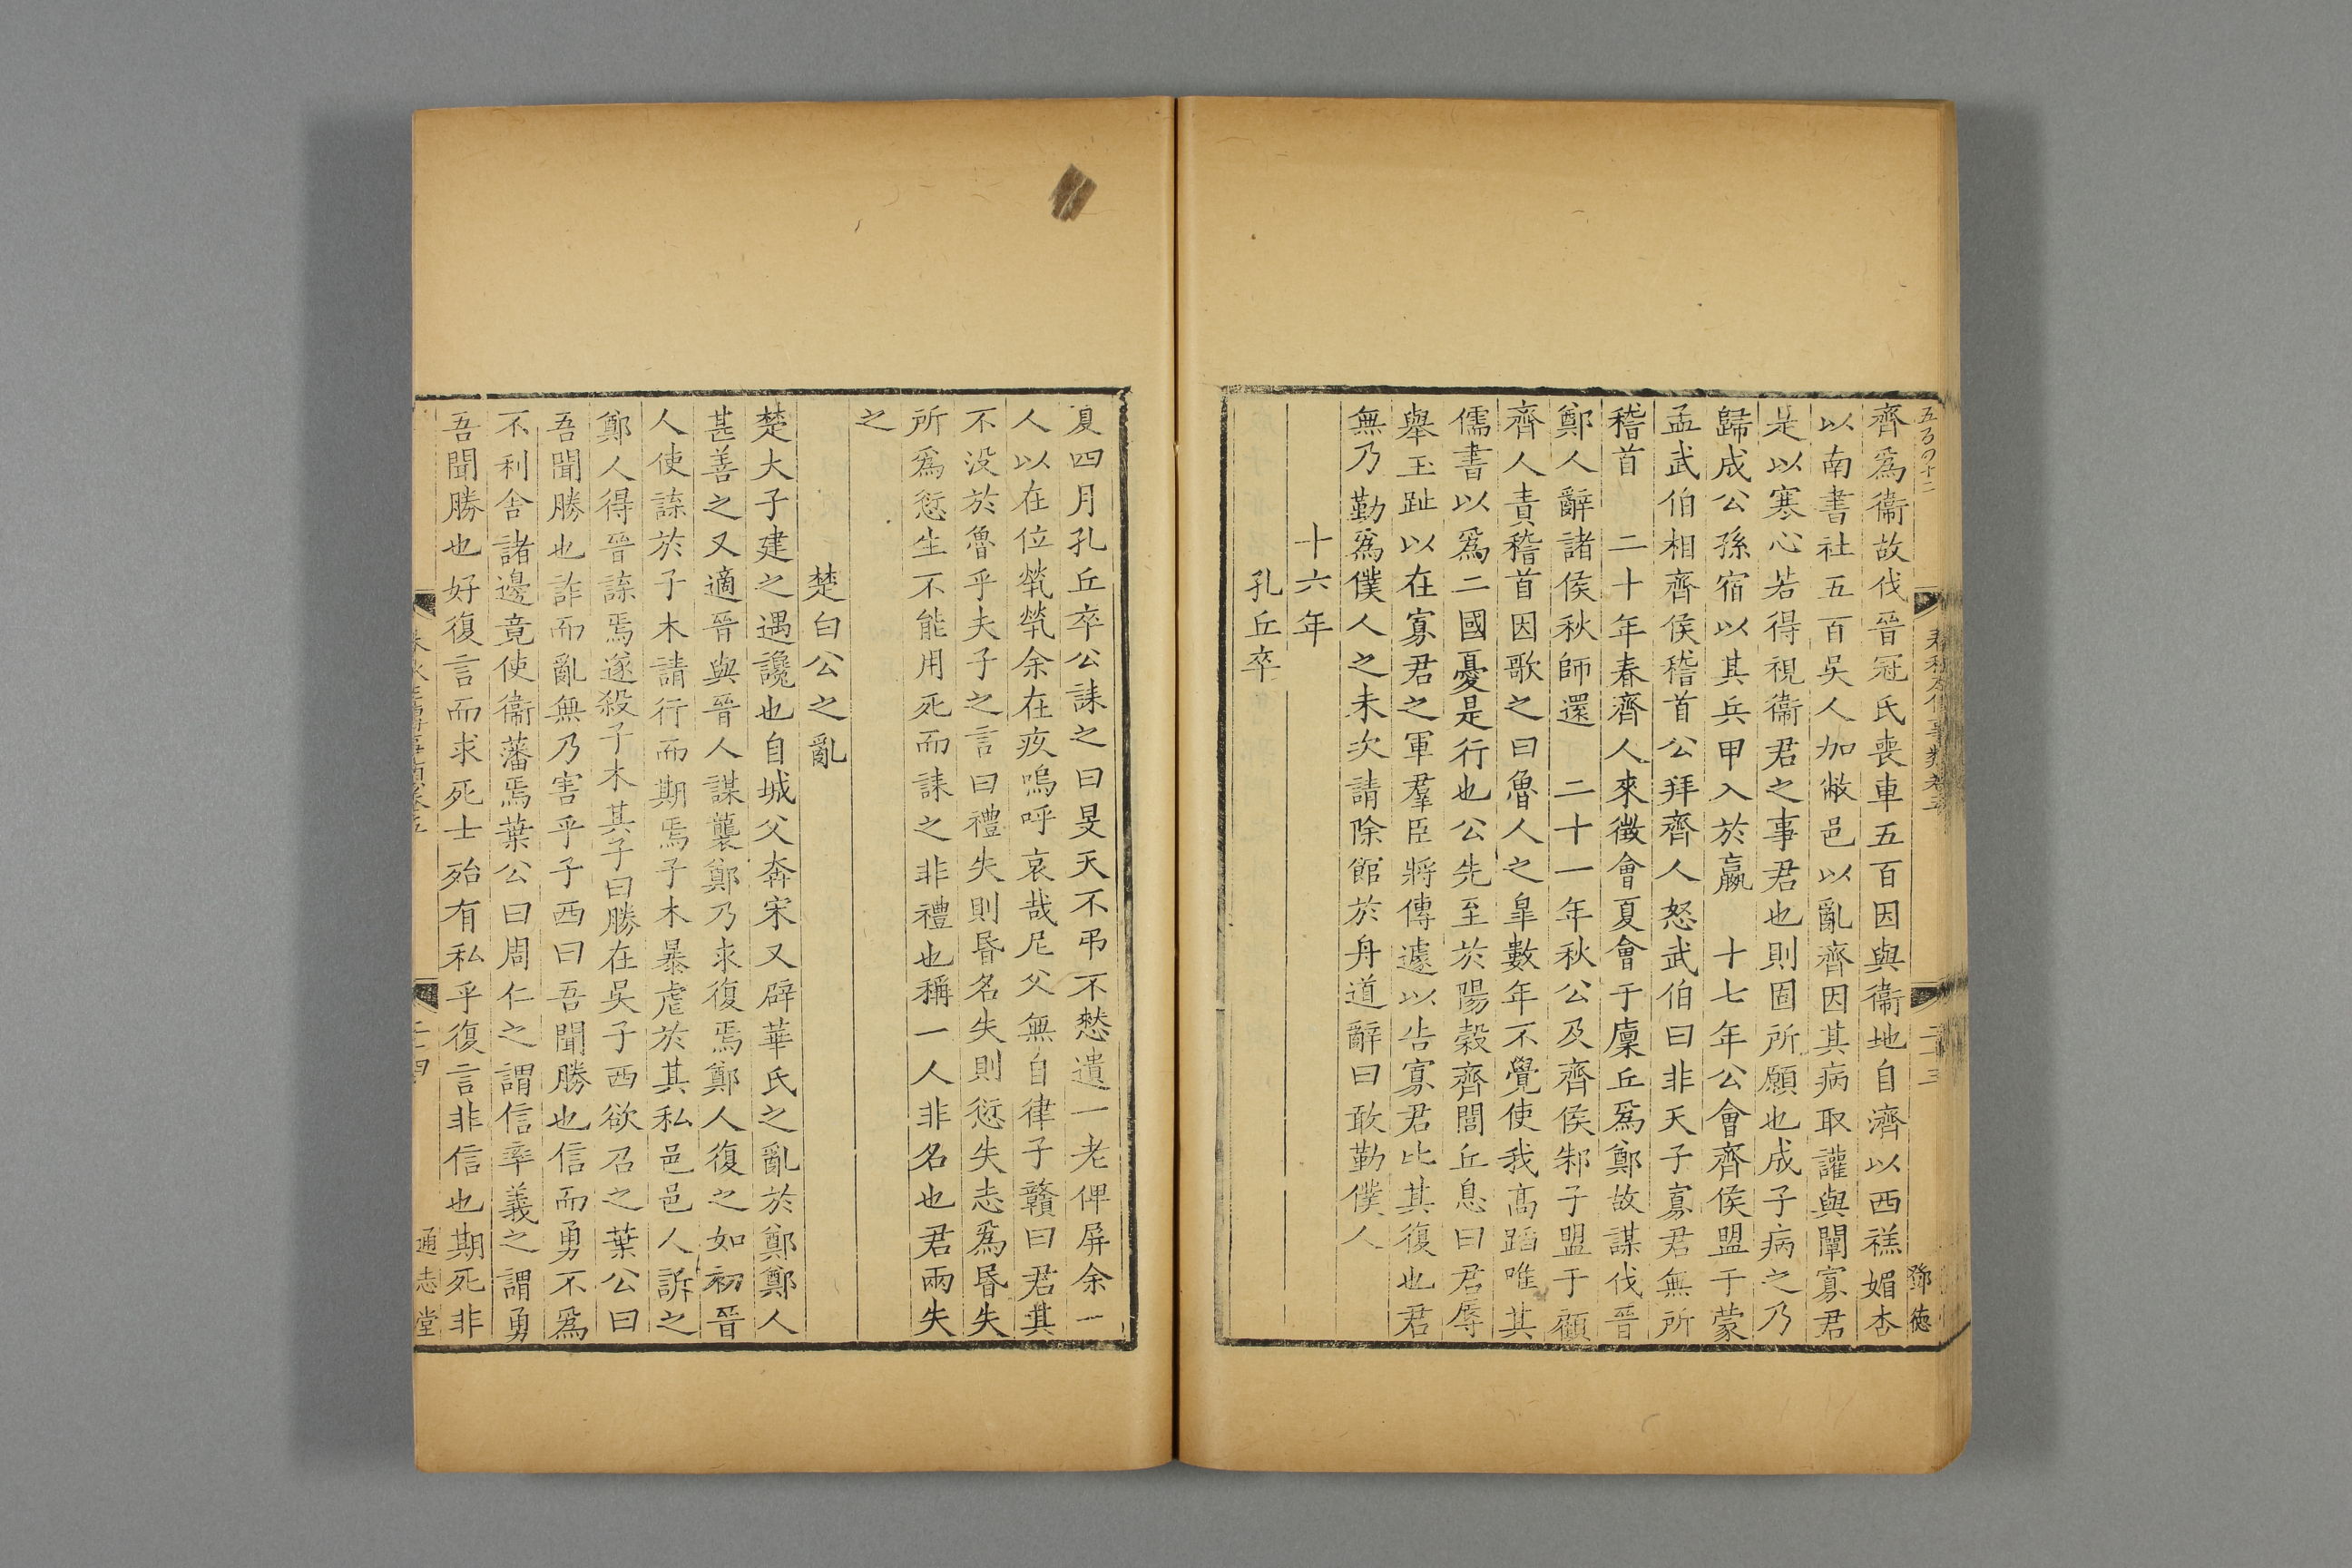 齊爲衞故伐晉冠氏喪車五百因與衞地自濟以西禚媚杏
以南書社五百吳人加敝邑以亂齊因其病取讙與闡寡君
是以寒心若得視衞君之事君也則固所願也成子病之乃
歸成公孫宿以其兵甲入於嬴　十七年公會齊侯盟于蒙
孟武伯相齊侯稽首公拜齊人怒武伯曰非天子寡君無所
稽首　二十年春齊人來徵會夏會于廩丘爲鄭故謀伐晉
鄭人辭諸侯秋師還　二十一年秋公及齊侯邾子盟于顧
齊人責稽首因歌之曰魯人之臯數年不覺使我高蹈唯其
儒書以爲二國憂是行也公先至於陽穀齊閭丘息曰君辱
舉玉趾以在寡君之軍羣臣將傳遽以告寡君比其復也君
無乃勤爲僕人之未次請除館於舟道辭曰敢勤僕人
十六年
孔丘卒
夏四月孔丘卒公誄之曰旻天不弔不憖遺一老俾屏余一
人以在位煢煢余在疚嗚呼哀哉尼父無自律子贛曰君其
不没於魯乎夫子之言曰禮失則昬名失則愆失志爲昬失
所爲愆生不能用死而誄之非禮也稱一人非名也君兩失
之
楚白公之亂
楚大子建之遇讒也自城父奔宋又辟華氏之亂於鄭鄭人
甚善之又適晉與晉人謀襲鄭乃求復焉鄭人復之如初晉
人使諜於子木請行而期焉子木暴虐於其私邑邑人訴之
鄭人得晉諜焉遂殺子木其子曰勝在吳子西欲召之葉公曰
吾聞勝也詐而亂無乃害乎子西曰吾聞勝也信而勇不爲
不利舍諸邊竟使衞藩焉葉公曰周仁之謂信率義之謂勇
吾聞勝也好復言而求死士殆有私乎復言非信也期死非
通志堂